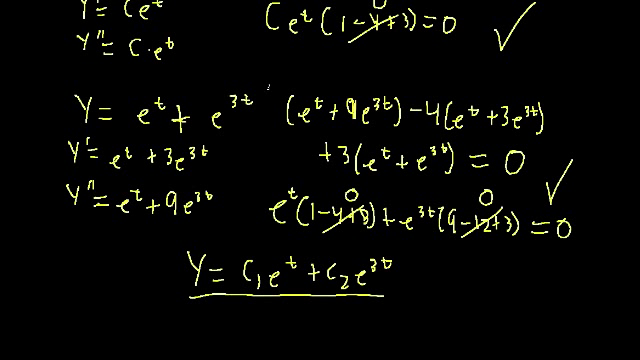 Y' = Ce^t
Y'' = C·e^t
Ce^t(1-4+3)=0 ✓
0
Y = e^t + e^3t
(e^t+9e^3t)-4(e^t+3e^3t)
Y' = e^t + 3e^3t
+3(e^t+e^3t) = 0 ✓
Y'' = e^t + 9e^3t
0 0
e^t(1-4+3)+e^3t(9-12+3)=0
Y = C₁e^t + C₂e^3t